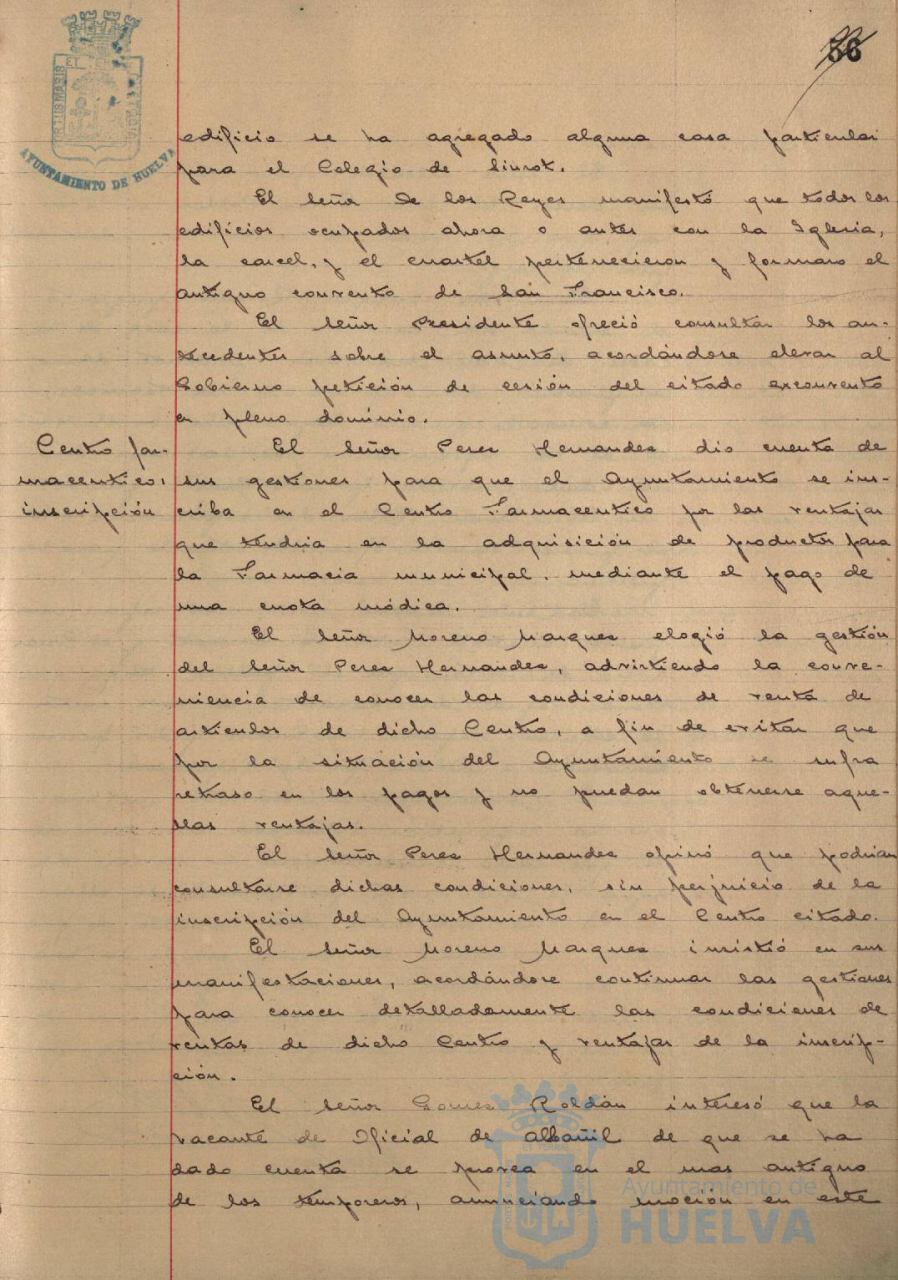 36
AYUNTAMIENTO DE HUELVA
edificio se ha agregado alguna casa particular
para el Colegio de Siurot.
El señor De los Reyes manifestó que todos los
edificios ocupados ahora o antes con la Iglesia,
la carcel, y el cuartel pertenecieron y formaro el
antiguo convento de San Francisco.
El señor Presidente ofreció consultar los an-
tecedentes sobre el asunto, acordándose elevar al
Gobierno petición de cesión del citado exconvento
en pleno dominio.
Centro far-
maceutico:
inscripción
El señor Perez Hernandez dio cuenta de
sus gestiones para que el Ayuntamiento se ins-
criba en el Centro Farmaceutico por las ventajas
que tendria en la adquisición de productos para
la Farmacia municipal, mediante el pago de
una cuota módica.
El señor Moreno Marquez elogió la gestión
del señor Perez Hernandez, advirtiendo la conve-
niencia de conocer las condiciones de venta de
articulos de dicho Centro, a fin de evitar que
por la situación del Ayuntamiento se sufra
retraso en los pagos y no puedan obtenerse aque-
llas ventajas.
El señor Perez Hernandez opinó que podrian
consultarse dichas condiciones, sin perjuicio de la
inscripción del Ayuntamiento en el Centro citado.
El señor Moreno Marquez insistió en sus
manifestaciones, acordándose continuar las gestiones
para conocer detalladamente las condiciones de
ventas de dicho Centro y ventajas de la inscrip-
ción.
El señor Gomez Roldán interesó que la
vacante de Oficial de albañil de que se ha
dado cuenta se provea en el mas antiguo
de los temporeros, anunciando moción en este
Ayuntamiento de
HUELVA